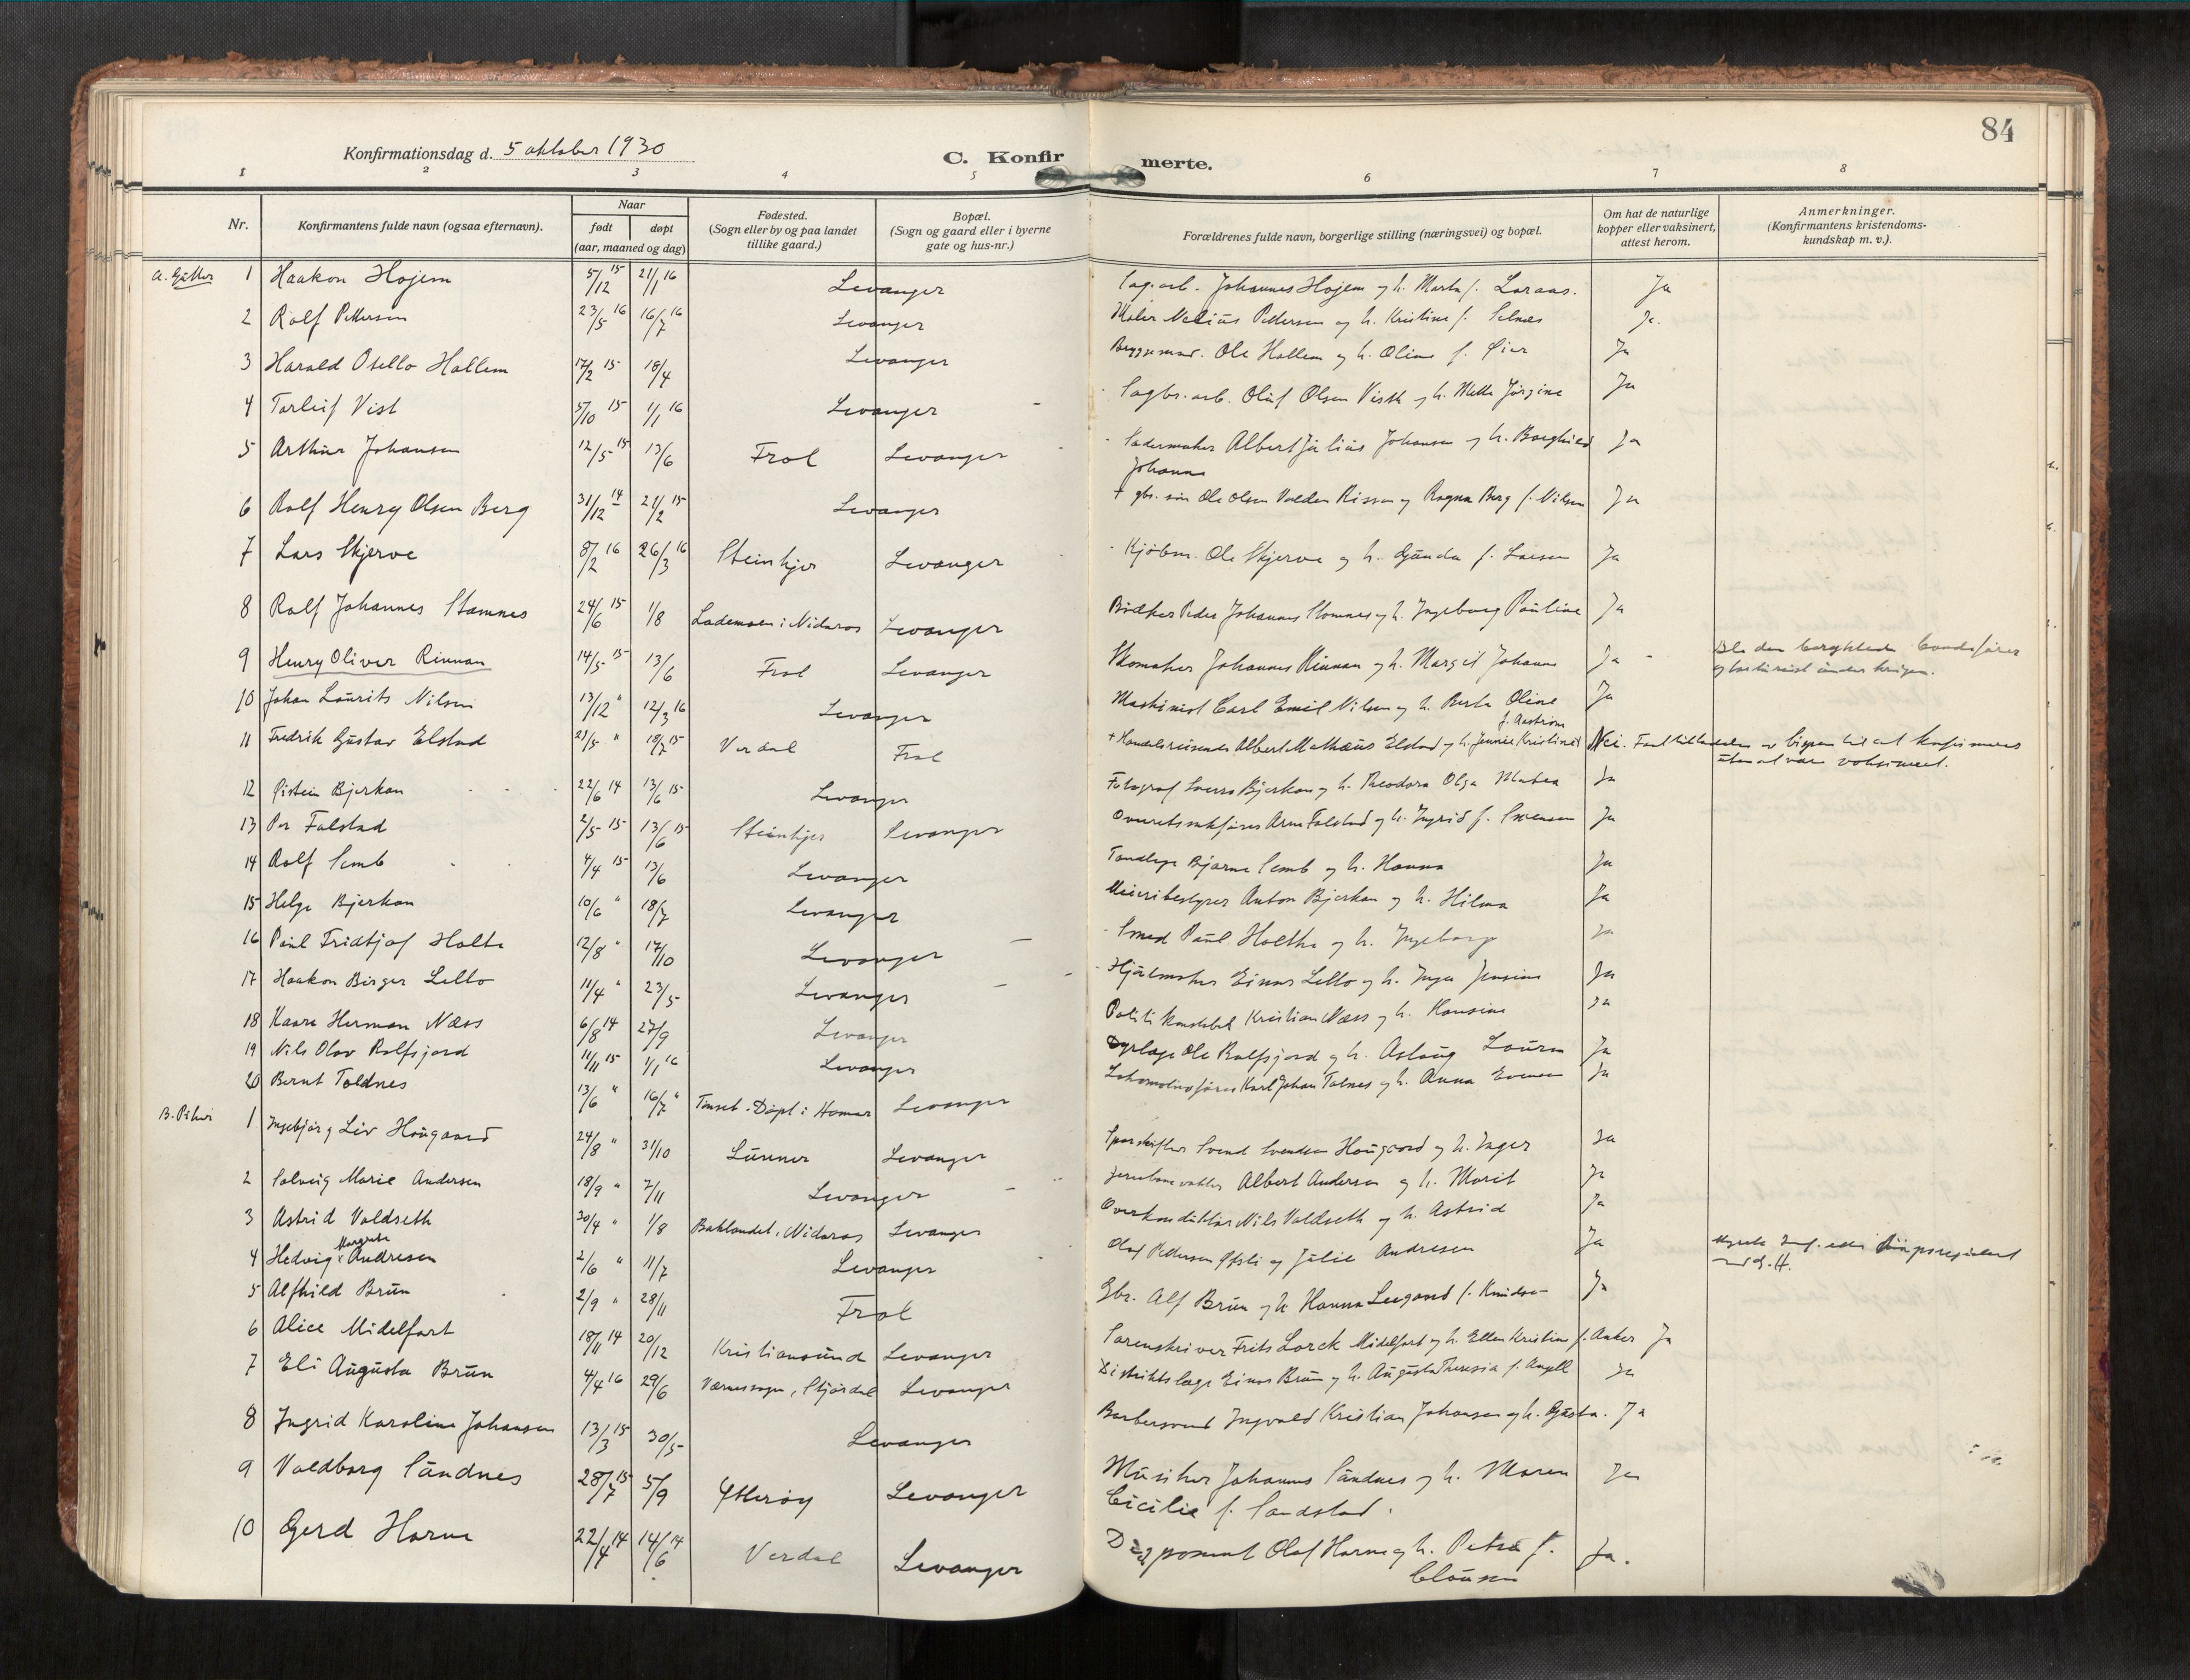 84
Konfirmationsdag d. 5 oktober 1930
C. Konfirmerte.
1 2 3 4 5 6 7 8
Nr.
Konfirmantens fulde navn (ogsaa efternavn).
Naar
født døpt
(aar, maaned og dag)
Fødested.
(Sogn eller by og paa landet
tillike gaard.)
Bopæl.
(Sogn og gaard eller i byerne
gate og hus-nr.)
Forældrenes fulde navn, borgerlige stilling (næringsvei) og bopæl.
Om hat de naturlige
kopper eller vaksinert,
attest herom.
Anmerkninger.
(Konfirmantens kristendoms-
kundskap m. v.).
A. Gutter 1 Haakon Hojem 5/12 15 21/1 16 Levanger Johannes Hojem og h. Marta f. Ja
2 Rolf Pettersen 23/5 16 16/7 16 Levanger Maler Nelius Pedersen og h. Kristine f. Selnæs Ja.
3 Harald Otello Hallem 17/2 15 18/4 Levanger Ole Hallem og h. Oline f. Ja
4 Torleif Vist 5/10 15 1/1 16 Levanger Sagbr. arb. Oluf Olsen Vist og h. Mette Jørgine Ja
5 Arthur Johansen 12/5 15 13/6 Frol Levanger Albert Julius Johansen og h. Borghild Ja
Johanna
6 Rolf Henry Olsen Berg 31/12 14 21/2 15 Levanger + gbr. søn Ole Olsen Valden Rissa og Ragna Berg f. Nilsen Ja
7 Lars Skjerve 8/2 16 26/3 16 Steinkjer Levanger Kjøbm. Ole Skjerve og h. Gunda f. Larsen Ja
8 Rolf Johannes Stamnes 24/6 15 1/8 Lademoen i Nidaros Levanger Peder Johannes Stamnes og h. Ingeborg Pauline Ja
9 Henry Oliver Rinnan 14/5 15 13/6 Frol Levanger Skomaker Johannes Rinnan og h. Margit Johanne Ja Ble den
under krigen.
10 Johan Laurits Nilsen 13/12 " 12/3 16 Levanger Maskinist Carl Emil Nilsen og h. Berta Oline Ja
11 Fredrik Gustav Elstad 18/7 15 Verdal Frol + Handelsreisende Albert Mathæus Elstad og h. Jennie Kristine Nei. av bispen til at konfirmeres
uten at være vaksinert.
12 Øistein Bjerkan 22/6 14 13/6 15 Levanger Fotograf Sverre Bjerkan og h. Theodora Olga Matea Ja
13 Per Falstad 2/5 15 13/6 15 Steinkjer Levanger Overretssakfører Arne Falstad og h. Ingrid f. Svensen Ja
14 Rolf Semb 4/4 15 13/6 Levanger Tandlæge Bjarne Semb og h. Hanna Ja
15 Helge Bjerkan 10/6 " 18/7 Levanger Meieribestyrer Anton Bjerkan og h. Hilma Ja
16 Paul Fridtjof Holte 12/8 " 17/10 Levanger Smed Paul Holthe og h. Ingeborg Ja
17 Haakon Birger Lello 11/4 " 23/5 Levanger Hjulmaker Einar Lello og h. Inga Jensine Ja
18 Kaare Herman Næss 6/8 14 27/9 Levanger Politikonstabel Kristian Næss og h. Hansine Ja
19 Nils Olav Rolfsjord 11/11 15 1/1 16 Levanger Dyrlæge Ole Rolfsjord og h. Aslaug Laura Ja
20 Bernt Toldnes 13/6 " 16/7 " Tynset. Døpt i Hamar Levanger Lokomotivfører Karl Johan Tolnes og h. Anna Ja
B. Piker 1 Ingebjørg Liv Hougaard 24/8 " 31/10 Lunner Levanger Svend Svendsen Hougaard og h. Inger Ja
2 Solveig Marie Andersen 18/9 " 7/11 Levanger Jernbanevokter Albert Andersen og h. Marit Ja
3 Astrid Valdseth 30/4 " 1/8 Baklandet, Nidaros Levanger Overkonduktør Nils Valdseth og h. Astrid Ja
4 Hedvig Margrete Andresen 2/6 " 11/7 Levanger Olaf Pettersen og Julie Andresen Ja
5 Alfhild Brun 2/9 " 28/11 Frol Gbr. Alf Brun og h. Hanna f. Knudsen Ja
6 Alice Midelfart 18/11 14 20/12 Kristiansund Levanger Sorenskriver Frits Lorck Midelfart og h. Ellen Kristine f. Anker Ja
7 Eli Augusta Brun 4/4 16 29/6 Værnes sogn, Stjørdal Levanger Distriktslæge Einar Brun og h. Augusta Theresia f. Angell Ja
8 Ingrid Karoline Johansen 13/3 15 30/5 Levanger Barbersvend Ingvald Kristian Johansen og h. Gusta. Ja
9 Valdborg Sandnes 28/7 15 5/9 Ytterøy Levanger Musiker Johannes Sandnes og h. Maren Ja
Cicilie f. Sandstad.
10 Gerd Harne 22/4 14 14/6 14 Verdal Levanger Disponent Olaf Harne og h. Petra f. Ja.
Clausen